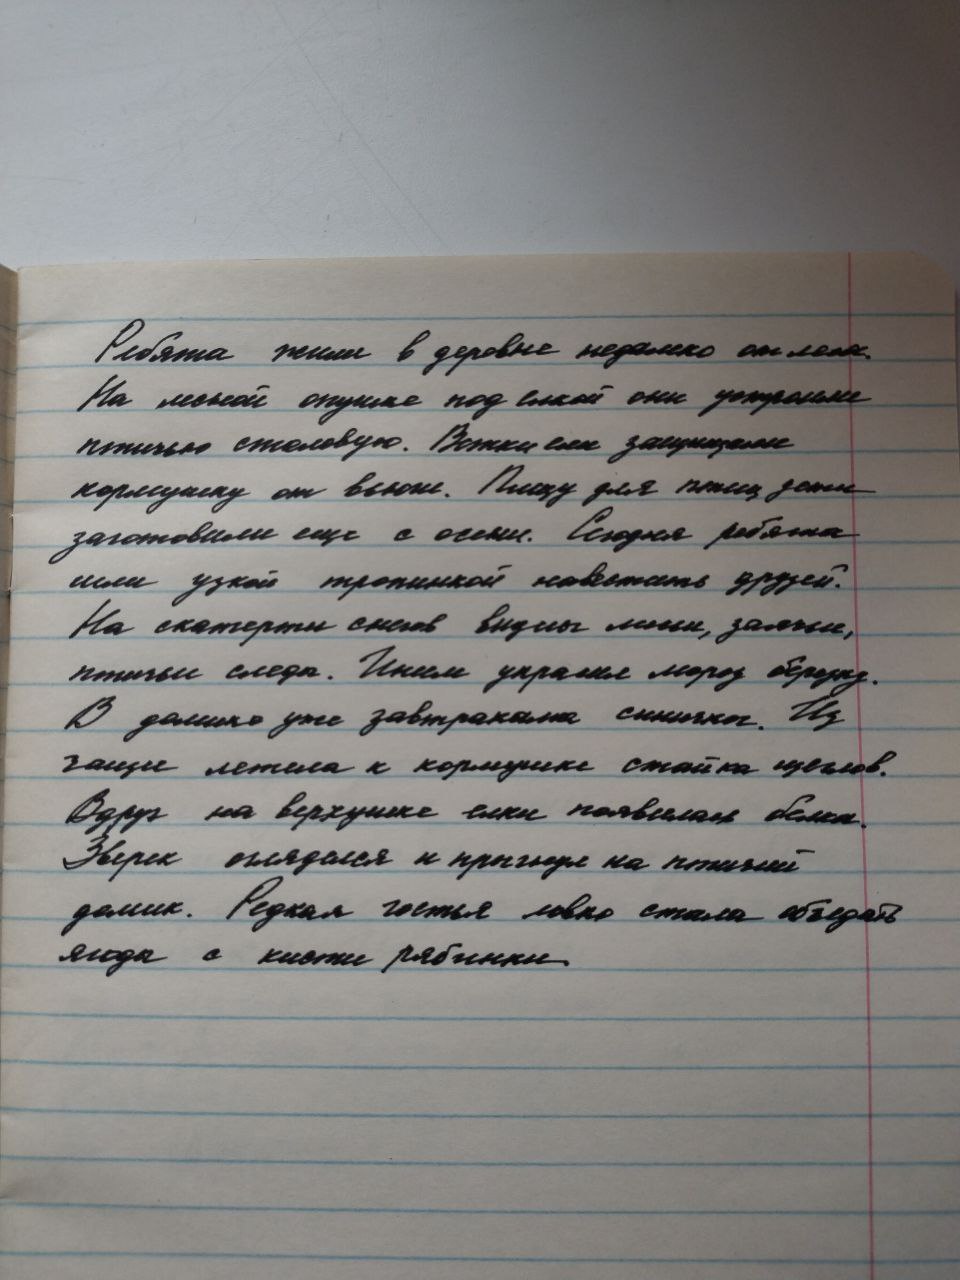 Ребята жили в деревне недалеко от леса.
На лесной опушке под елкой они устроили
птичью столовую. Ветки ели защищали
кормушку от вьюги. Пищу для птиц дети
заготовили еще с осени. Сегодня ребята
шли узкой тропинкой навестить друзей.
На скатерти снегов видны лисьи, заячьи,
птичьи следы. Инеем украсил мороз березку.
В домике уже завтракала синичка. Из
чащи летела к кормушке стайка щеглов.
Вдруг на верхушке елки появилась белка.
Зверек огляделся и прыгнул на птичий
домик. Редкая гостья ловко стала объедать
ягоды с кисти рябинки.